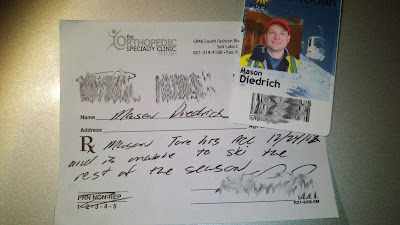 the
ORTHOPEDIC
SPECIALTY CLINIC
5848 South Fashion
Salt Lake
801-314-4
Mason
Diedrich
Name Mason Diedrich
Address
Rx Mason Tore his ACL 12/24/
and is unable to ski the
rest of the season
PRN-NON-REP
1-2-3-4-5